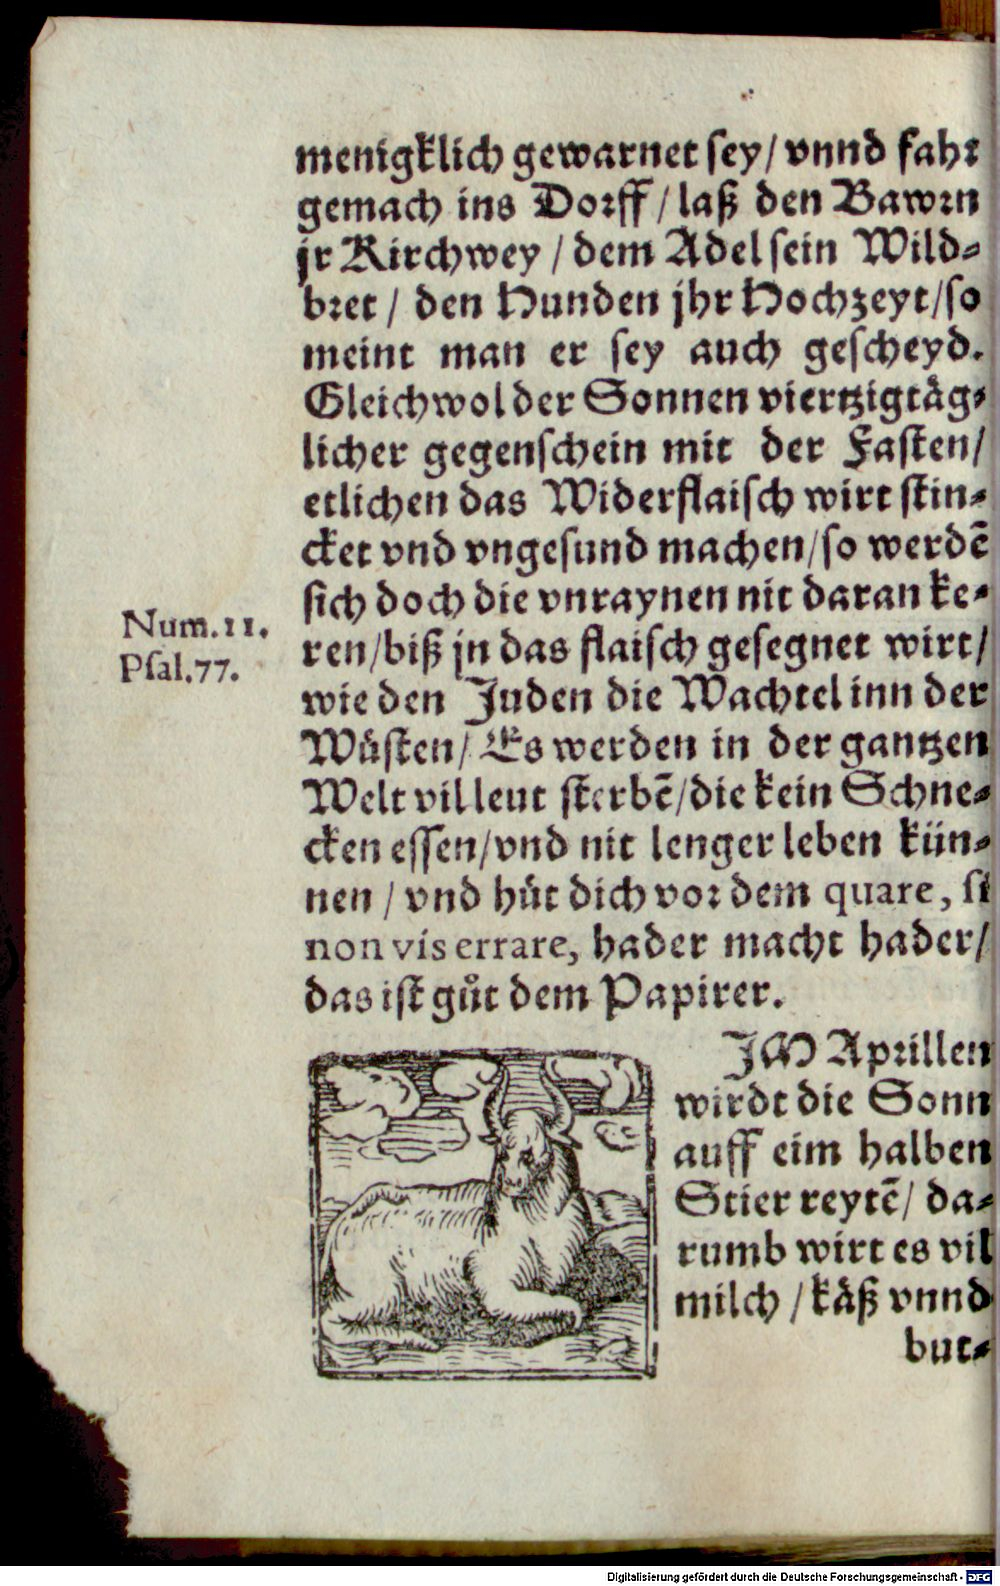 menigklich gewarnet sey/ vnnd fahr
gemach ins Dorff/ laß den Bawrn
jr Kirchwey / dem Adel sein Wild⸗
bret / den Hunden jhr Hochzeyt/ so
meint man er sey auch gescheyd.
Gleichwol der Sonnen viertzigtäg⸗
licher gegenschein mit der Fasten/
etlichen das Widerflaisch wirt stin⸗
cket vnd vngesund machen/ so werdẽ
sich doch die vnraynen nit daran ke⸗
Num. 11.
Psal. 77.
ren/ biß jn das flaisch gesegnet wirt/
wie den Juden die Wachtel inn der
Wůsten/ Es werden in der gantzen
Welt vil leut sterbẽ/ die kein Schne⸗
cken essen/ vnd nit lenger leben kün⸗
nen / vnd hůt dich vor dem quare, si
non vis errare, hader macht hader/
das ist gůt dem Papirer.
JM Aprillen
wirdt die Sonn
auff eim halben
Stier reytẽ/ da⸗
rumb wirt es vil
milch / käß vnnd
but⸗
Digitalisierung gefördert durch die Deutsche Forschungsgemeinschaft - DFG